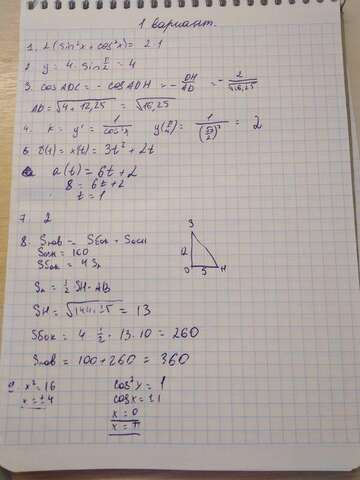 1 вариант.
1. 2(sin²x + cos²x) = 2·1
2. y = 4 · sin π/2 = 4
3. cos ADC = - cos ADH = - DH/AD = - 2/√16,25
AD = √4 + 12,25 = √16,25
4. k = y' = 1/cos²x y( )= 1/(√2/2)² = 2
6. v(t) = x(t) = 3t² + 2t
a(t) = 6t + 2
8 = 6t + 2
t = 1
7. 2
8. Sпов = Sбок + Sосн
Sосн = 100
Sбок = 4Sл
S
12
O 5 H
Sл = ½ SH · AB
SH = = 13
Sбок = 4 · ½ · 13 · 10 = 260
Sпов = 100 + 260 = 360
9. x² = 16 cos²x = 1
x = ±4 cos x = ±1
x = 0
x = π